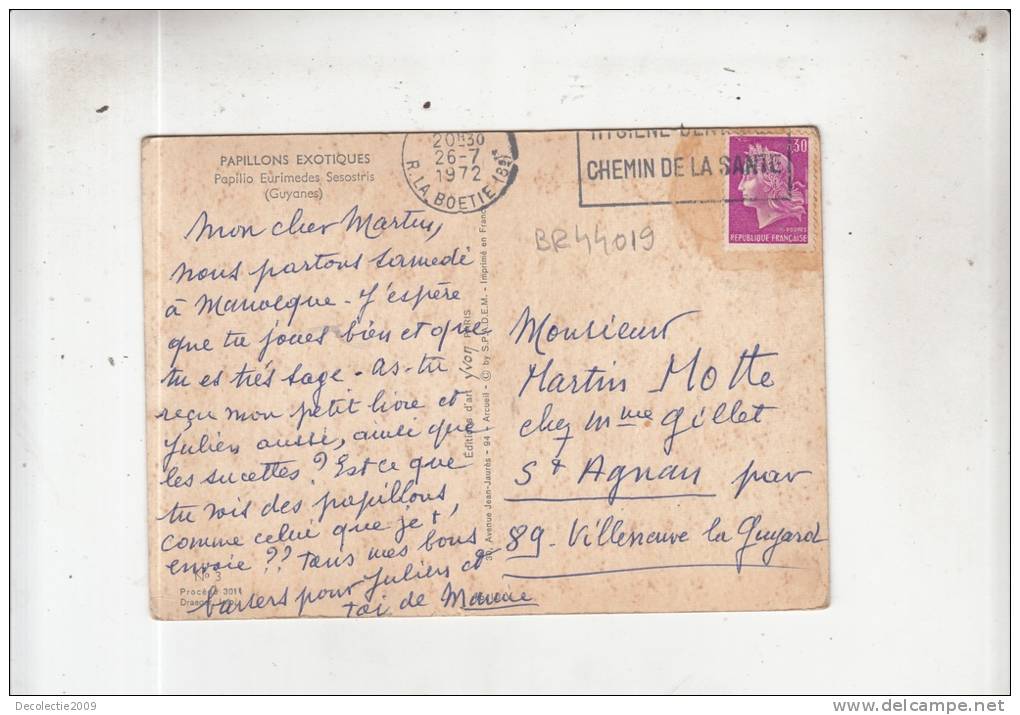 PAPILLONS EXOTIQUES
Papilio Eurimedes Sesostris
(Guyanes)
Mon cher Martin,
nous partons samedi
à Manosque - J'espère
que tu joues bien et que
tu es très sage - as-tu
reçu mon petit livre et
Julien aussi, ainsi que
les sucettes ? Est ce que
tu vois des papillons,
comme celui que je t'
envoie ?? Tous mes bons
baisers pour Julien et
toi de Mamie
N° 3
Procédé 3011
Éditions d'art yvon PARIS
30, Avenue Jean-Jaurès - 94 - Arcueil - © by S.P.A.D.E.M. - Imprimé en France
20H30
26-7
1972
R. LA BOETIE (8e)
HYGIENE
CHEMIN DE LA SANTE
0,30
REPUBLIQUE FRANÇAISE
BR44019
Monsieur
Martin Motte
chez Mme Gillet
St Agnan par
89 - Villeneuve la Guyard
Decolectie2009
delcampe.net